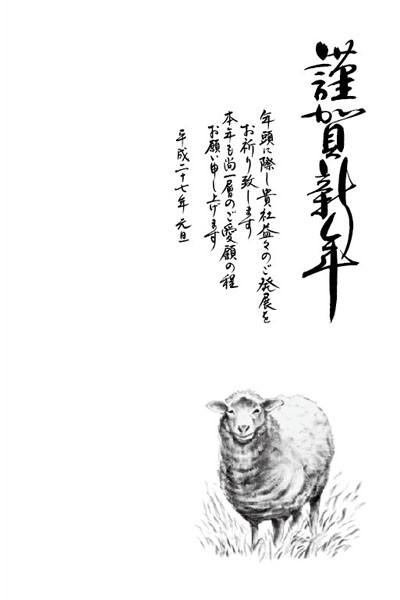 謹賀新年
年頭に際し貴社益々のご発展を
お祈り致します
本年も尚一層のご愛顧の程
お願い申し上げます
平成二十七年 元旦